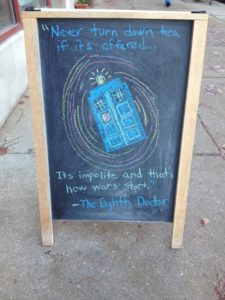 "Never turn down tea
if it's offered...
It's impolite and that's
how wars start."
-The Eighth Doctor